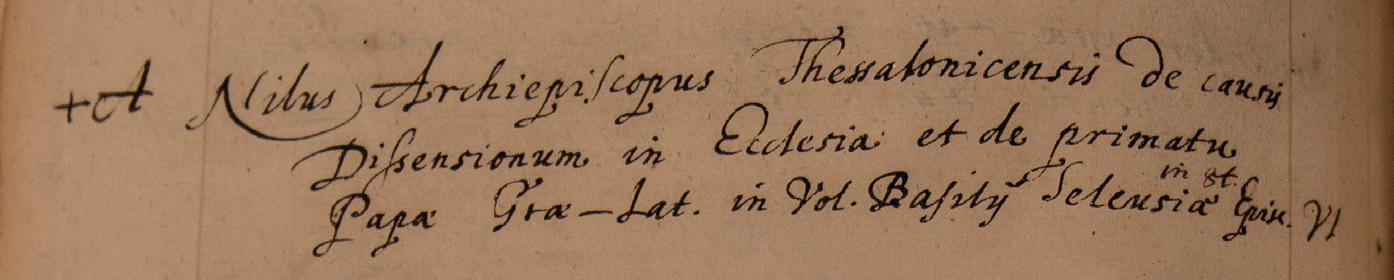 +A Nilus Archiepiscopus Thessalonicensis De causis
Dissensionum in Ecclesia et de primatu
Papæ Græ-Lat. in Vol. Basilij Seleusiæ Episc. VI
in 8t.